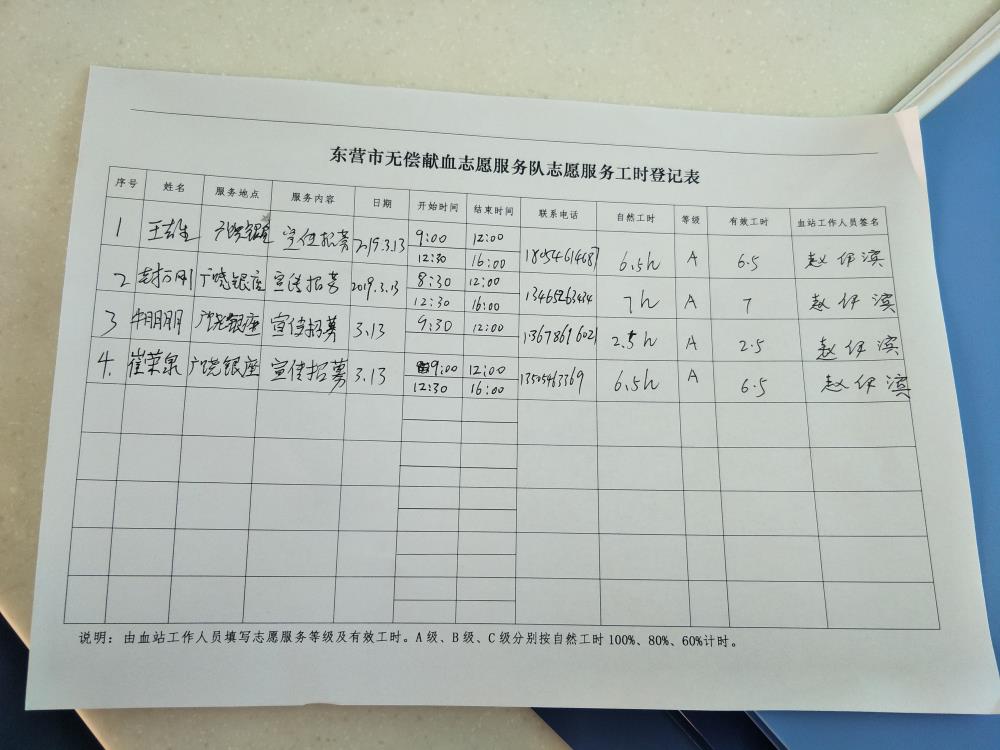 东营市无偿献血志愿服务队志愿服务工时登记表
序号 姓名 服务地点 服务内容 日期 开始时间 结束时间 联系电话 自然工时 等级 有效工时 血站工作人员签名
1 广饶银座 宣传招募 2019.3.13 9:00 12:00 18054614687 6.5h A 6.5 赵伊滨
12:30 16:00
2 广饶银座 宣传招募 2019.3.13 8:30 12:00 13465263434 7h A 7 赵伊滨
12:30 16:00
3 牛朋朋 广饶银座 宣传招募 3.13 9:30 12:00 13678616021 2.5h A 2.5 赵伊滨
4. 崔荣泉 广饶银座 宣传招募 3.13 9:00 12:00 13505463369 6.5h A 6.5 赵伊滨
12:30 16:00
说明：由血站工作人员填写志愿服务等级及有效工时。A级、B级、C级分别按自然工时100%、80%、60%计时。